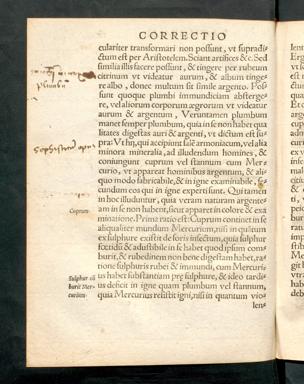 CORRECTIO
culariter transformari non possunt, vt supradi-
ctum est per Aristotelem. Sciant artifices &c. Sed
similia illis facere possunt, & tingere per rubeum
citrinum vt videatur aurum, & album tinge-
re albo, donec multum sit simile argento. Pos-
sunt quoque plumbi immundiciam absterge-
re, vel aliorum corporum ægrorum vt videatur
aurum & argentum, Veruntamen plumbum
manet semper plumbum, quia in se non habet qua
litates digestas auri & argenti, vt dictum est su-
pra: Vt hi, qui accipiunt sale armoniacum, vel alia
minora mineralia, ad illudendum homines, &
coniungunt cuprum vel stannum cum Mer
curio, vt appareat hominibus argentum, & ali-
quo modo fabricabile, & in igne examinibile, se
cundum eos qui in igne expertisunt. Qui tamen
in hoc illuduntur, quia veram naturam argente-
am in se non habent, sicut apparet in colore & exa
minatione. Prima ratio est: Cuprum continet in se
aliqualiter mundum Mercurium, nisi in quátum
ex sulphure existit de foris infectum, quia sulphur
fœtidū & adustibile in se habet quod ipsum com-
burit, & rubedinem non bene digestam habet, ra-
tione sulphuris rubei & immundi, cum Mercuriu
us habet substantiam prę sulphure, & ideo tardi-
us deficit in igne quam plumbum vel stannum,
quia Mercurius resistit igni, nisi in quantum vio-
len-
plumbū
Cuprum.
Sulphur cō
burit Mer-
curium.